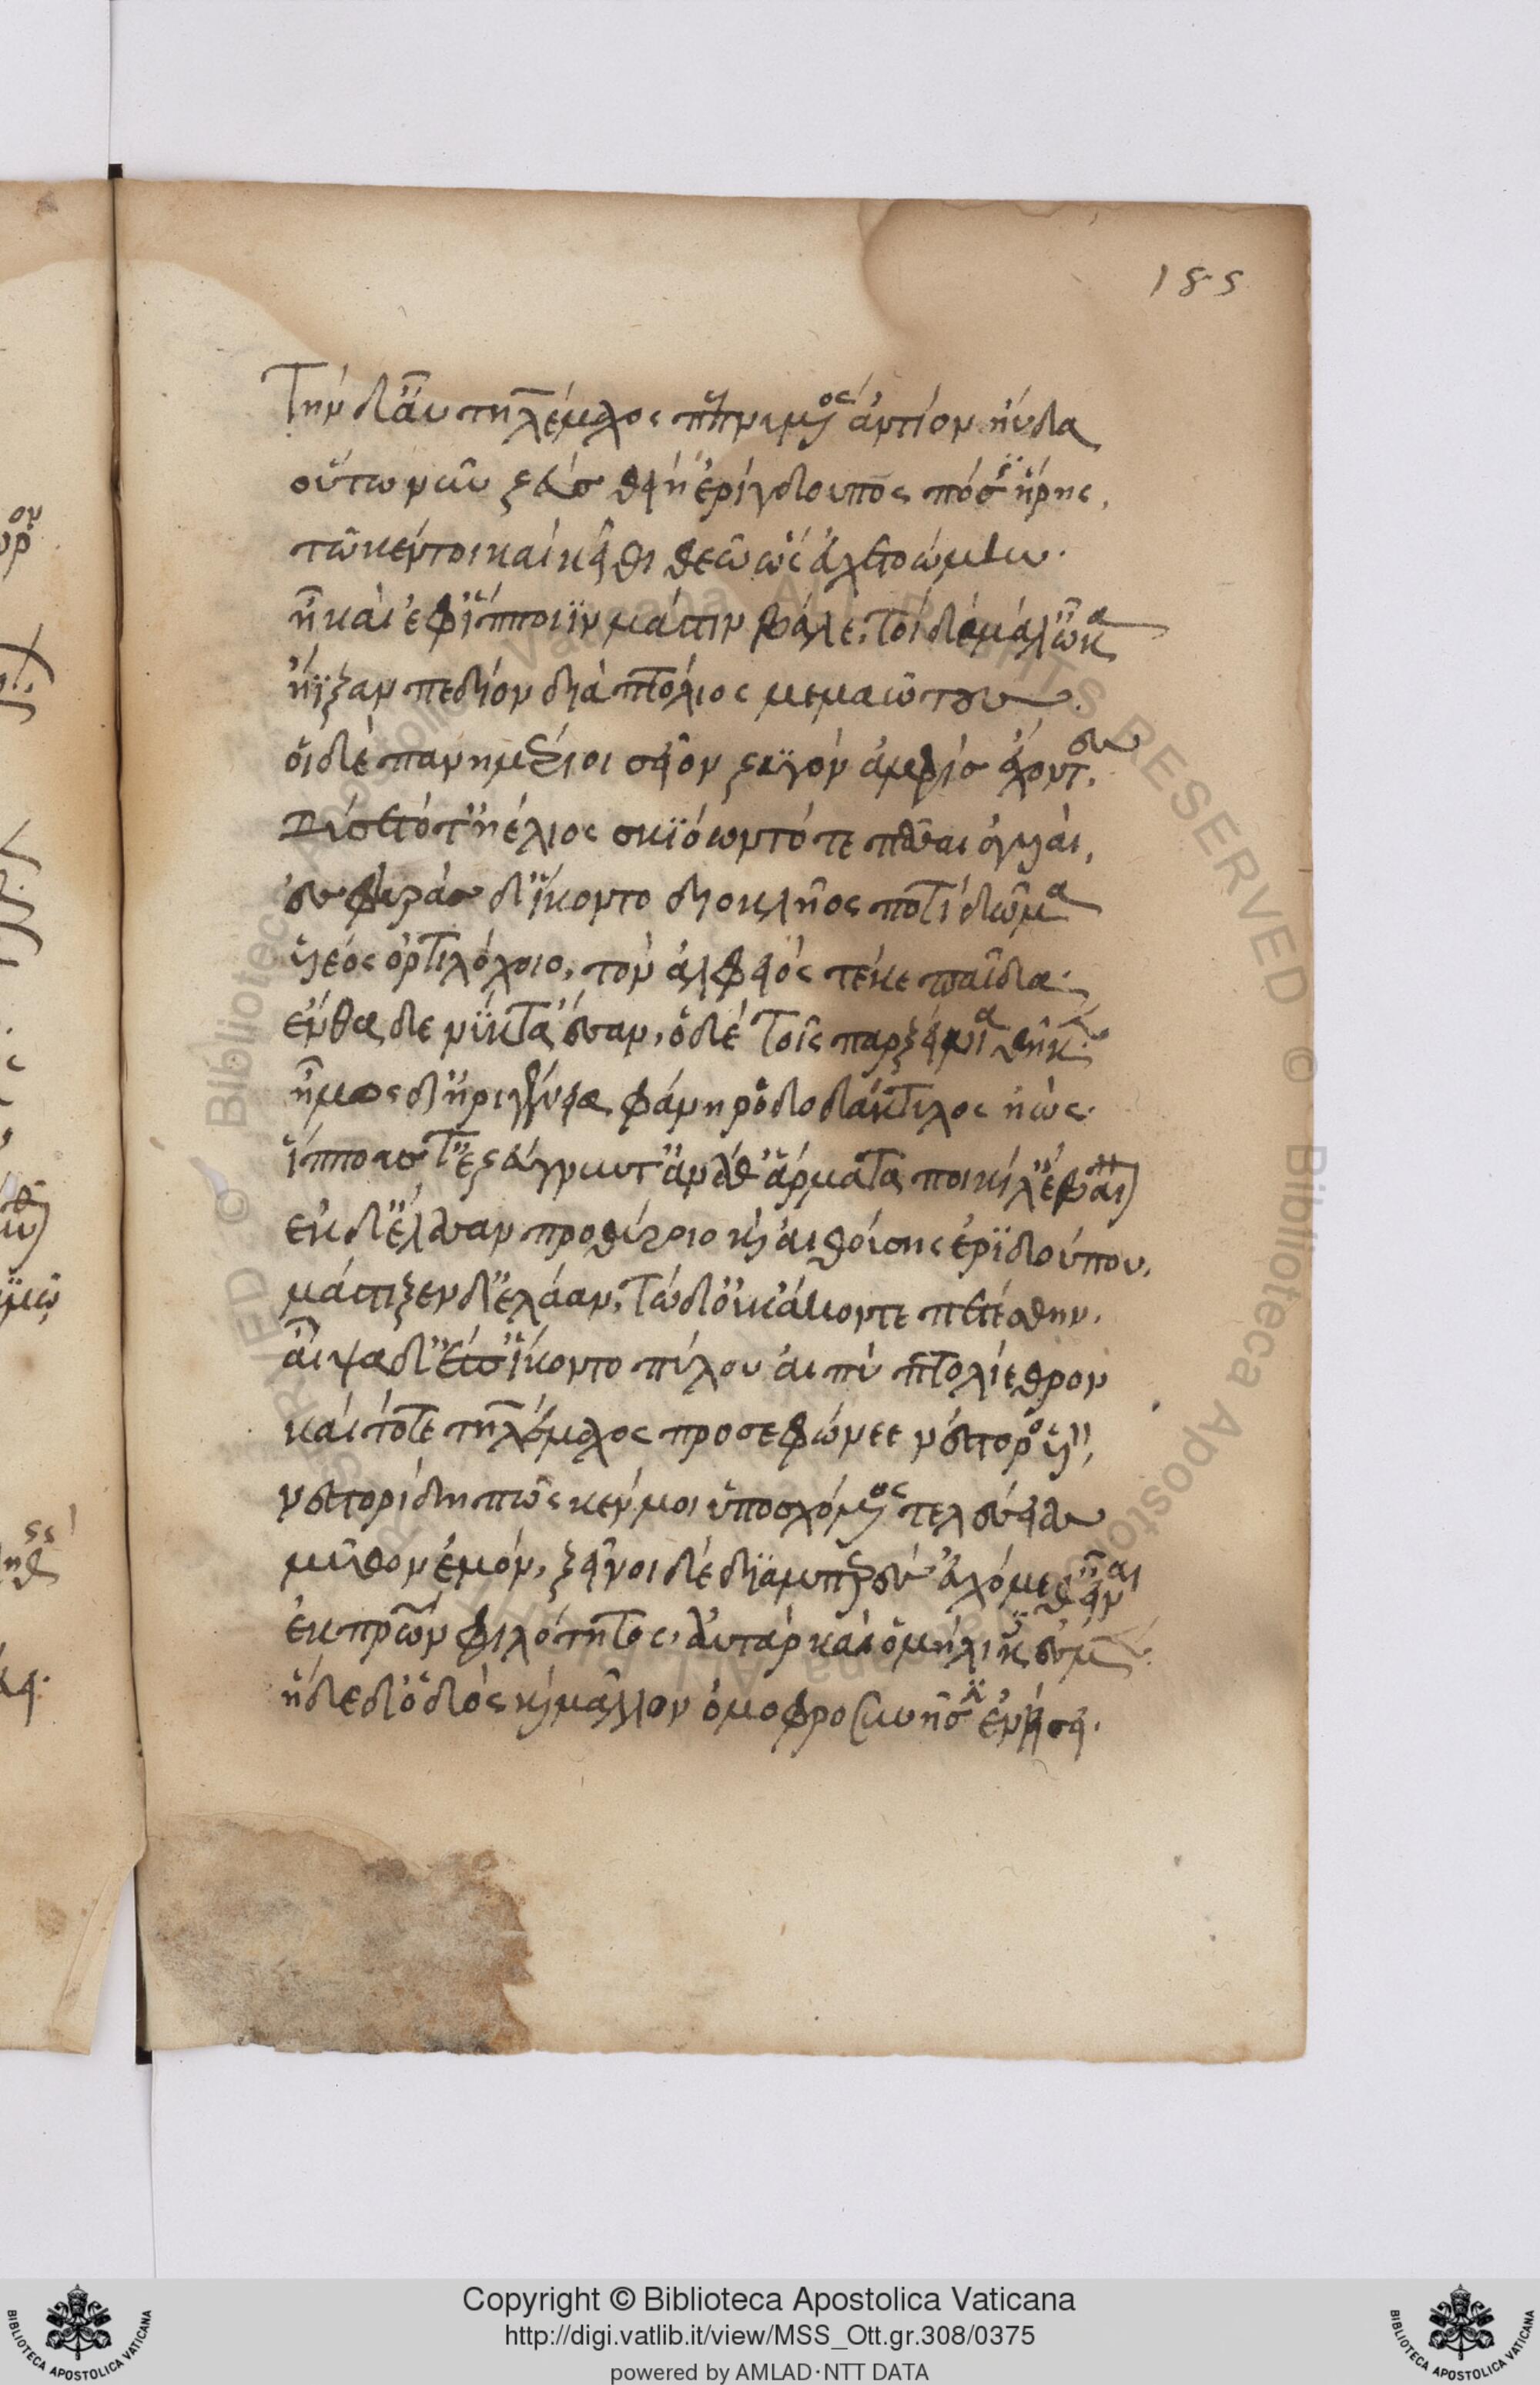 185
Τὴν δ' αὖ τηλέμαχος πεπνυμένος ἀντίον ηὔδα
οὕτω νῦν ζεὺς θείη ἐρίγδουπος πόσις ἥρης.
τῶ κέν τοι καὶ κεῖθι θεῶ ὣς εὐχετοώμην.
ἦ καὶ ἐφ' ἵπποιϊν μάστιν βάλε. τοὶ δὲ μάλ' ὦκα
ἤϊξαν πεδίον διὰ πτόλιος μεμαῶτες
οἱ δὲ πανημέριοι σεῖον ζυγὸν ἀμφὶς ἔχοντες.
δύσετό τ' ἠέλιος σκιόωντό τε πᾶσαι ἀγυιαί,
ἐς φηρὰς δ' ἵκοντο διοκλῆος ποτὶ δῶμα
υἱέος ὀρτιλόχοιο, τὸν ἀλφειὸς τέκε παῖδα.
ἔνθα δε νύκτ' ἄεσαν, ὁ δὲ τοῖς παρ ξείνια θῆκεν.
ἦμος δ' ἠριγένεια φάνη ῥοδοδάκτυλος ἠώς.
ἵππους τ' ἐζεύγνυντ' ἀνά θ' ἅρματα ποικίλ' ἔβαινον
ἐκ δ' ἔλασαν προθύροιο καὶ αἰθούσης ἐριδούπου.
μάστιξεν δ' ἐλάαν, τὼ δ' οὐκ ἄκοντε πετέσθην.
αἶψα δ' ἔπειθ' ἵκοντο πύλου αἰπὺ πτολίεθρον
καὶ τότε τηλέμαχος προσεφώνεε νέστορος υἱόν,
νεστορίδη πῶς κέν μοι ὑποσχόμενος τελέσειας
μῦθον ἐμόν, ξεῖνοι δὲ διαμπερὲς εὐχόμεθ' εἶναι
ἐκ πατέρων φιλότητος, ἀτὰρ καὶ ὁμήλικές εἰμεν.
ἥδε δ' ὁδὸς καὶ μᾶλλον ὁμοφροσύνησιν ἐνήσει.
Copyright © Biblioteca Apostolica Vaticana
http://digi.vatlib.it/view/MSS_Ott.gr.308/0375
powered by AMLAD·NTT DATA